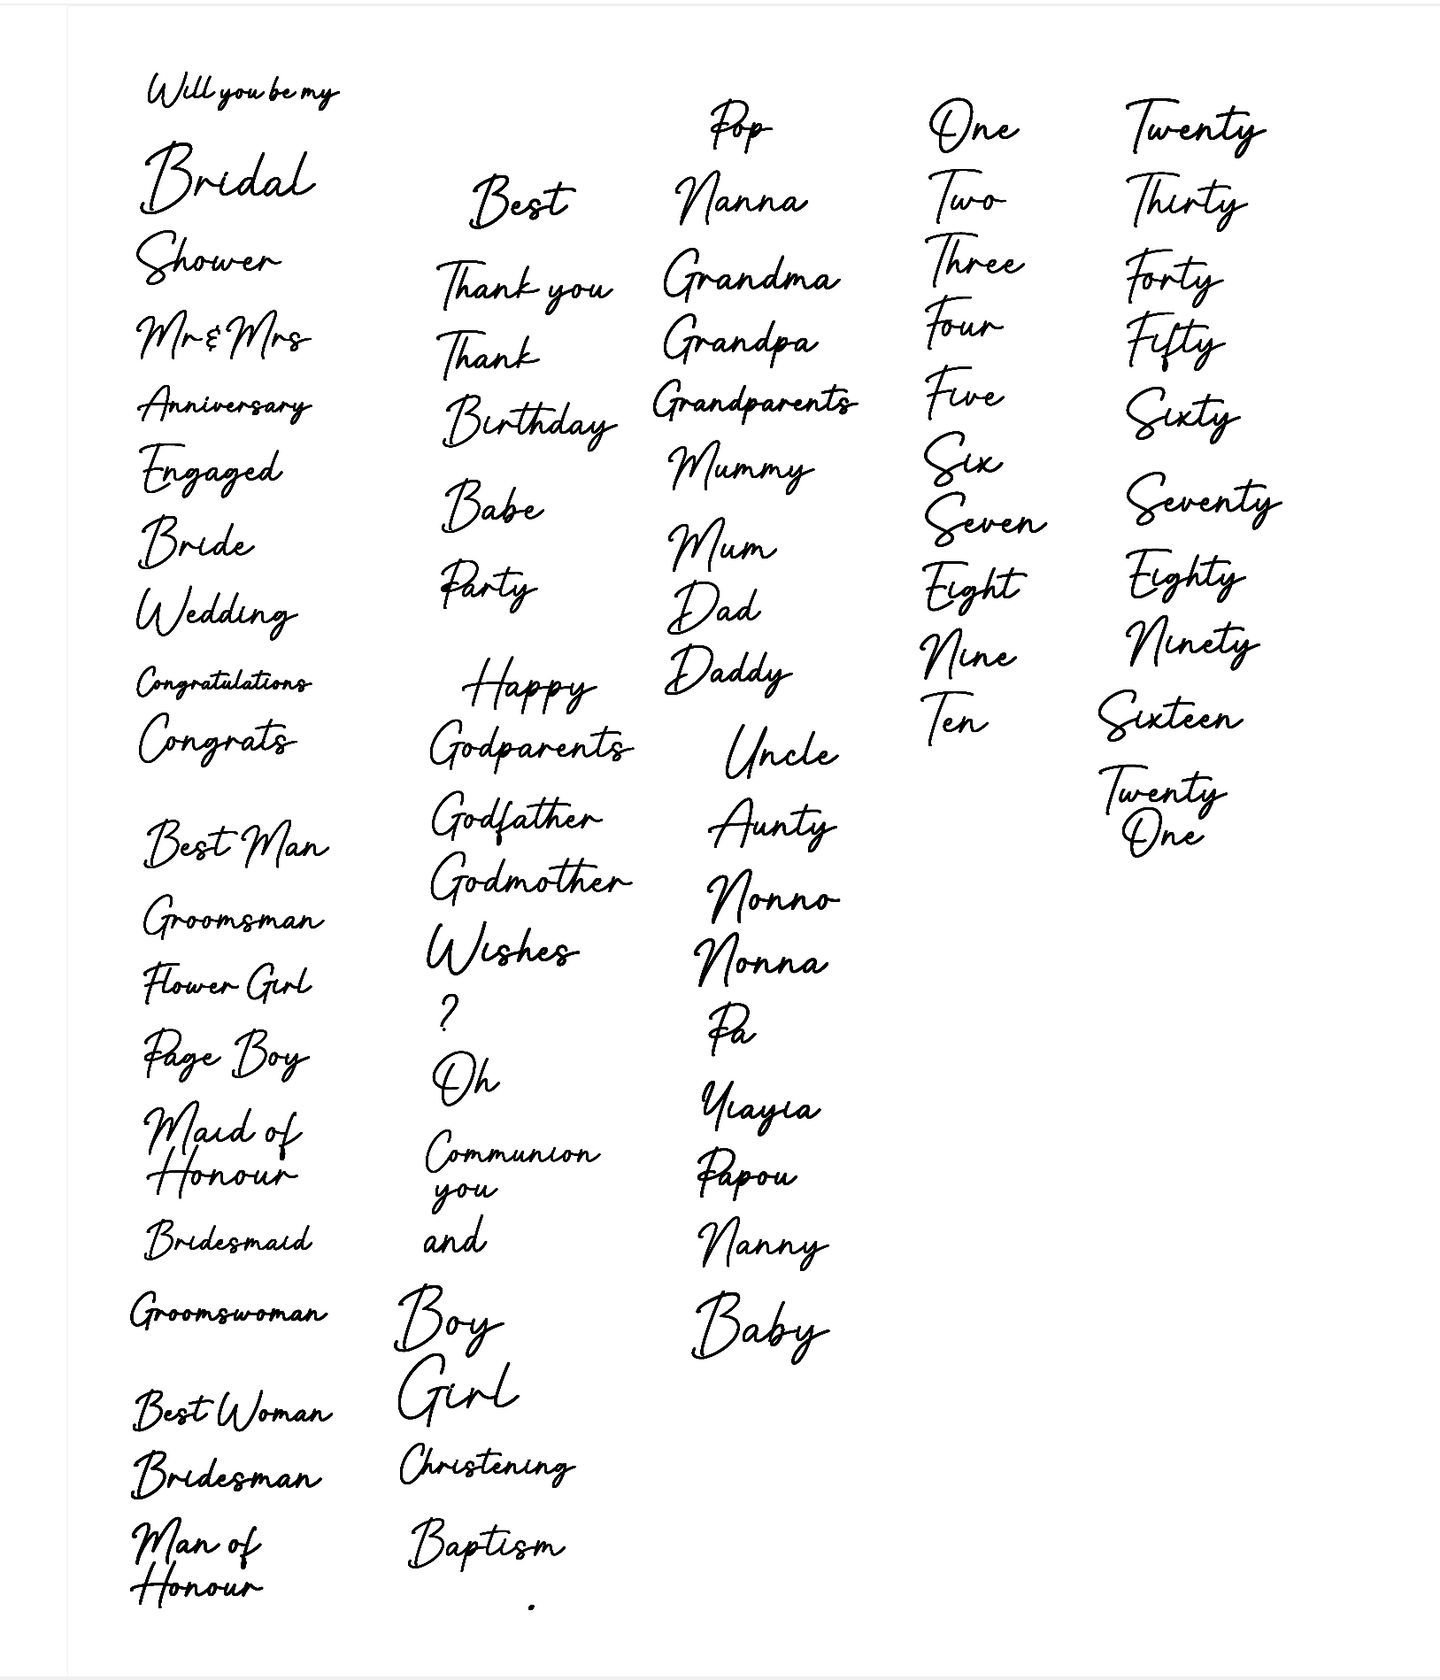 Will you be my
Bridal
Shower
Mr & Mrs
Anniversary
Engaged
Bride
Wedding
Congratulations
Congrats
Best Man
Groomsman
Flower Girl
Page Boy
Maid of
Honour
Bridesmaid
Groomswoman
Best Woman
Bridesman
Man of
Honour
Best
Thank you
Thank
Birthday
Babe
Party
Happy
Godparents
Godfather
Godmother
Wishes
?
Oh
Communion
you
and
Boy
Girl
Christening
Baptism
.
Pop
Nanna
Grandma
Grandpa
Grandparents
Mummy
Mum
Dad
Daddy
Uncle
Aunty
Nonno
Nonna
Pa
Yiayia
Papou
Nanny
Baby
One
Two
Three
Four
Five
Six
Seven
Eight
Nine
Ten
Twenty
Thirty
Forty
Fifty
Sixty
Seventy
Eighty
Ninety
Sixteen
Twenty
One